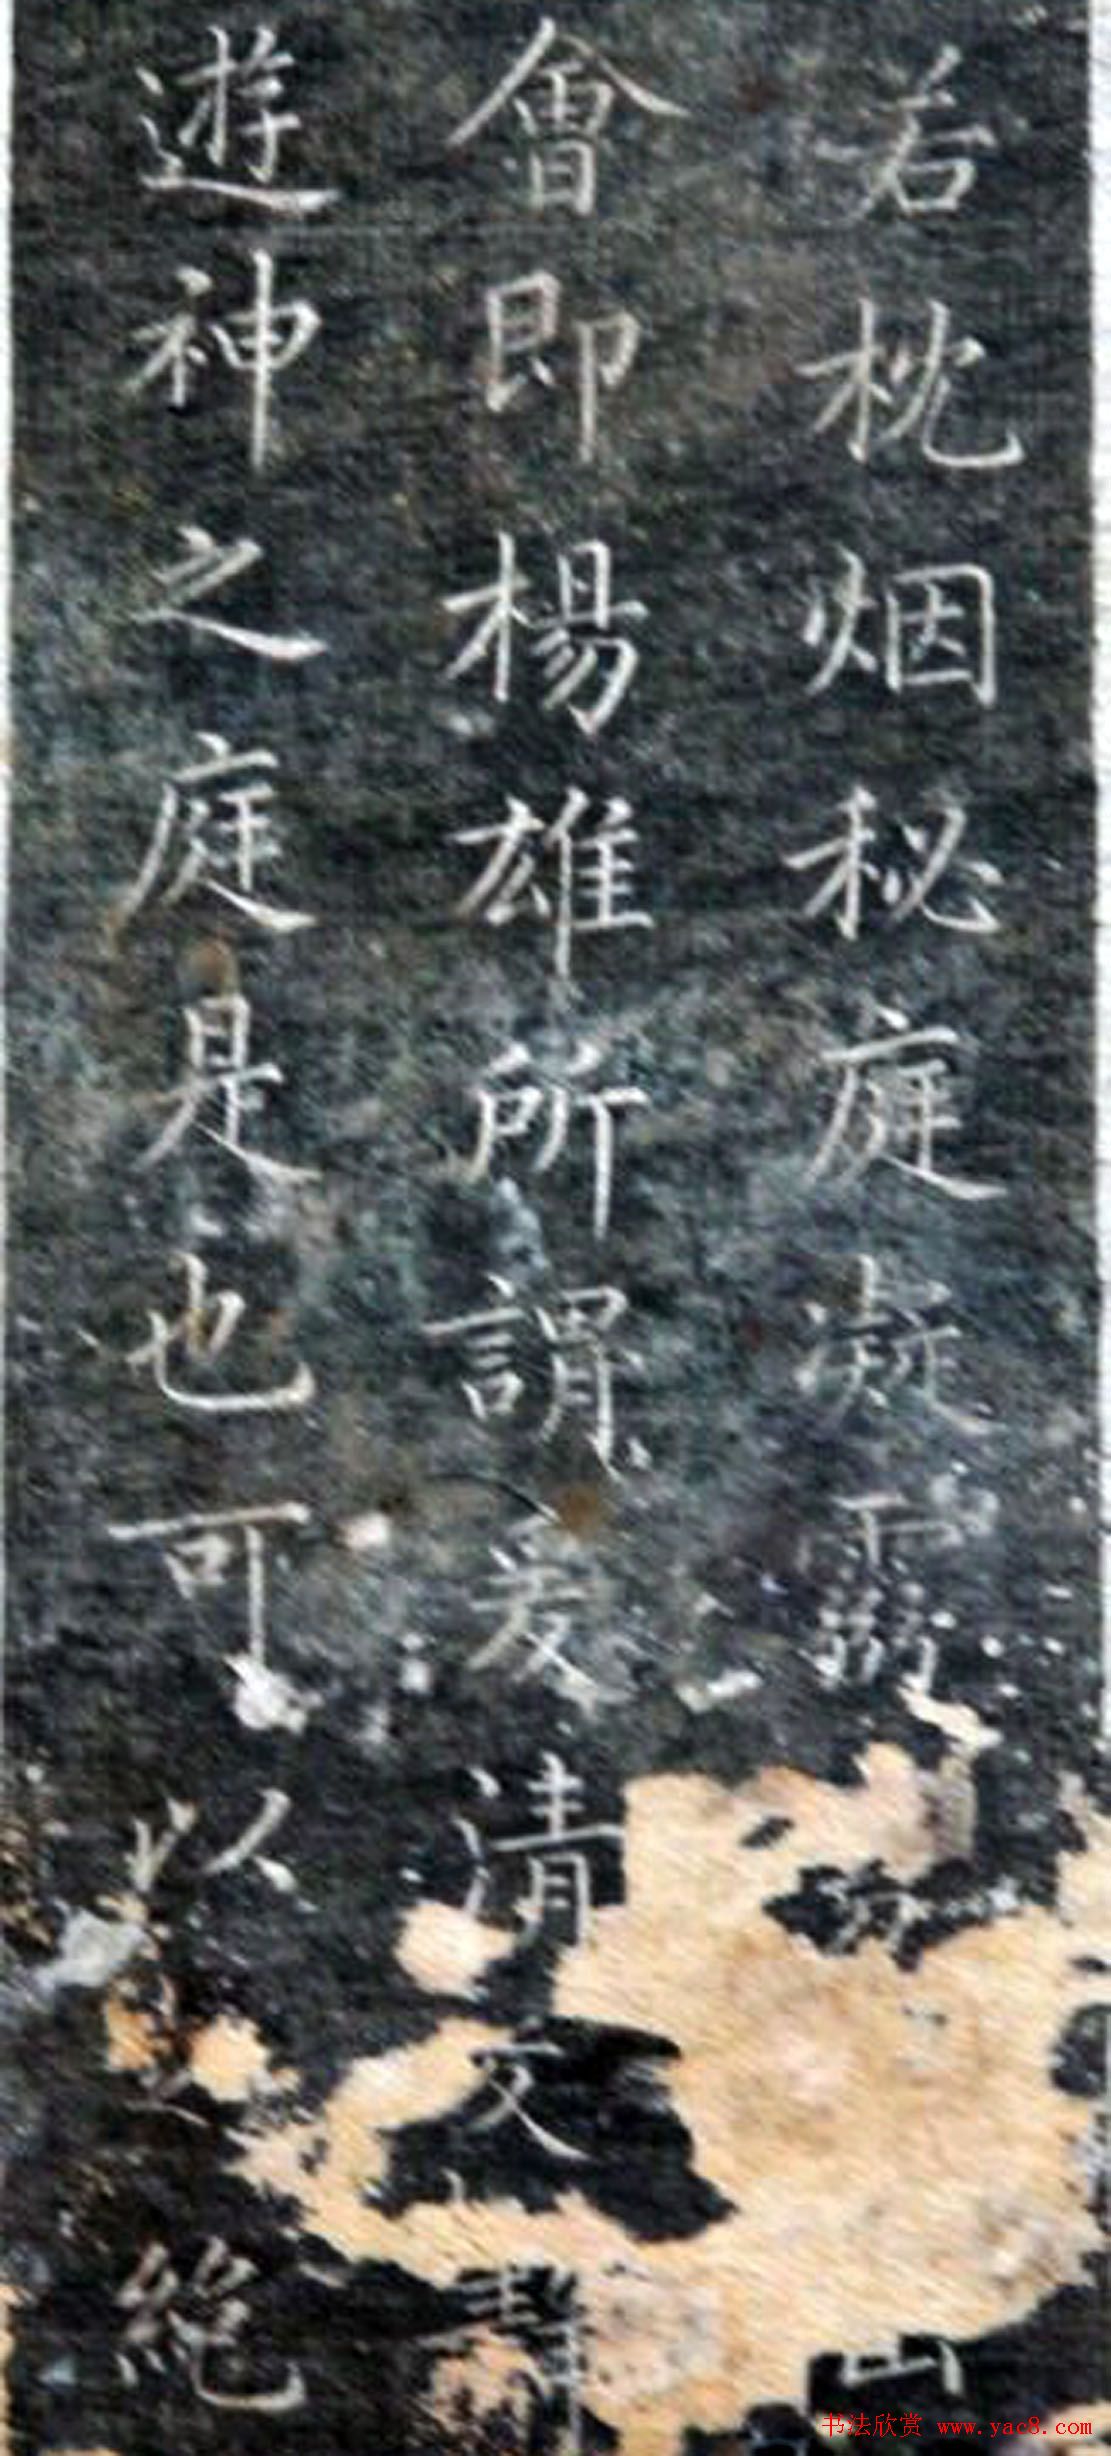 若枕烟秘庭凝霛
會即楊雄所謂爰清
遊神之庭是也可以絕
书法欣赏 www.yac8.com